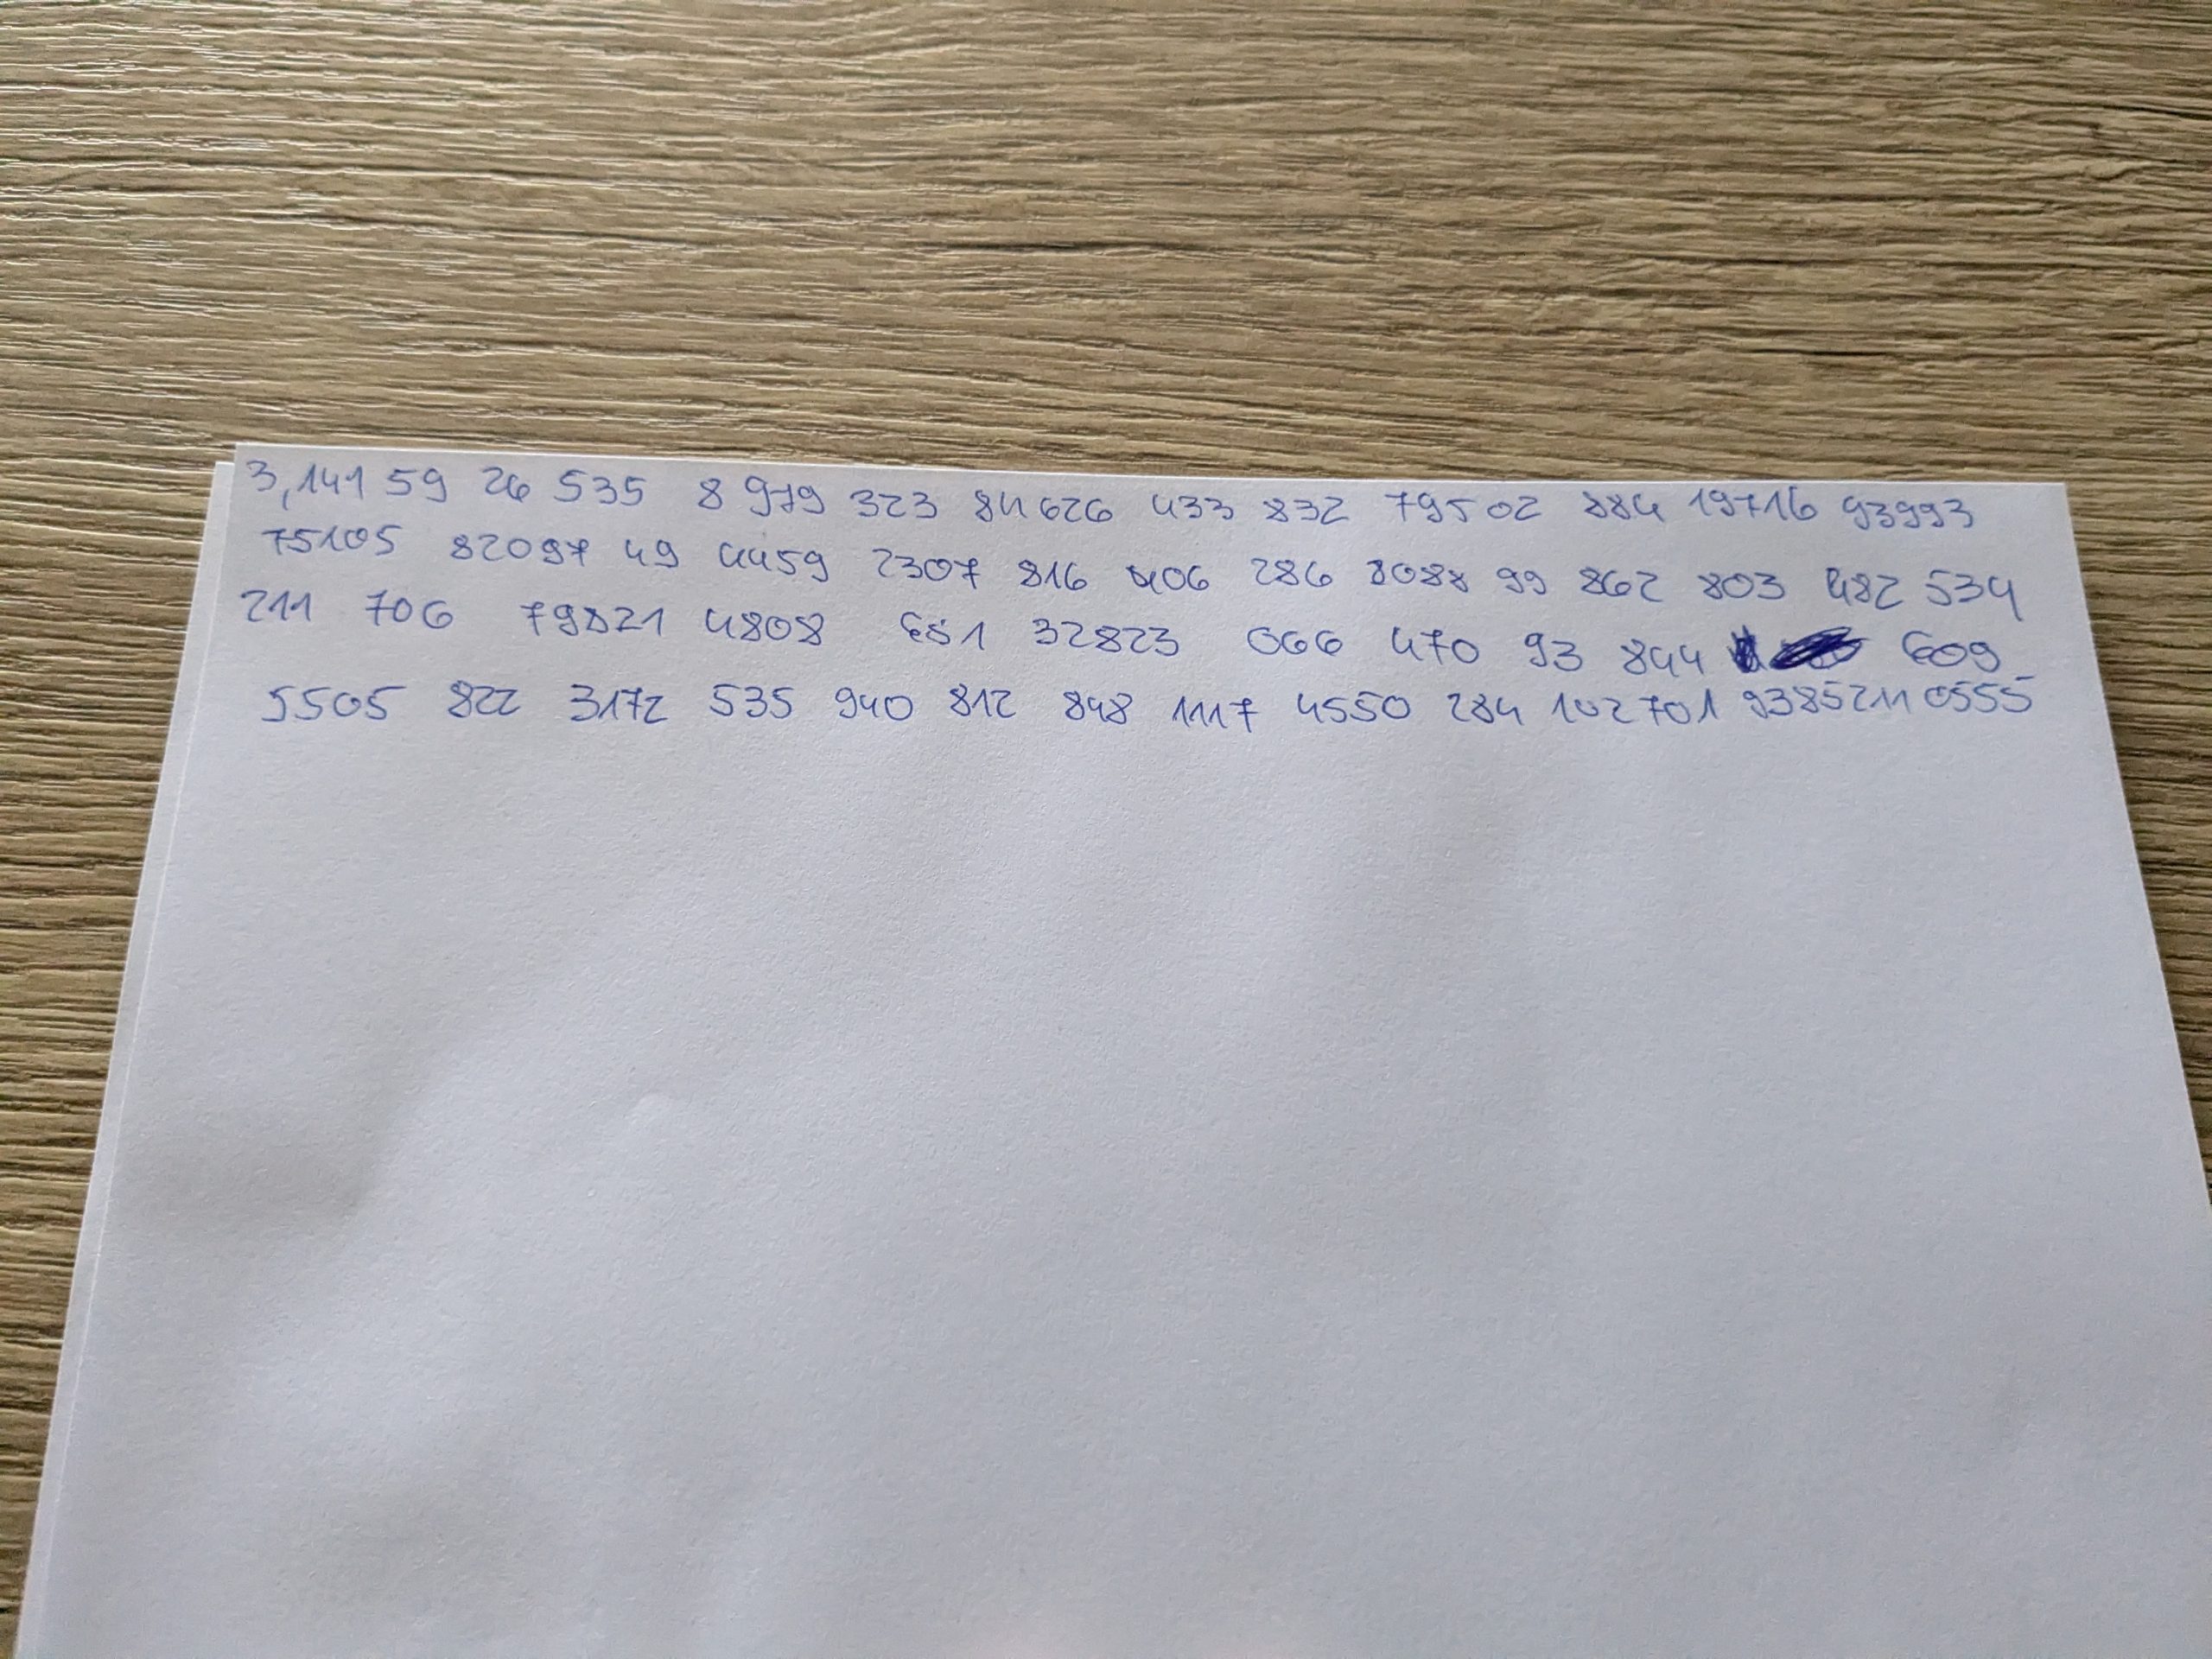 3,141 59 26 535 8 979 323 84626 433 832 79502 884 19716 93993
75105 82097 49 4459 2307 816 406 286 8088 99 862 803 482 534
211 706 79821 4808 651 32823 066 470 93 844 609
5505 822 3172 535 940 812 848 1117 4550 284 102701 9385211 0555